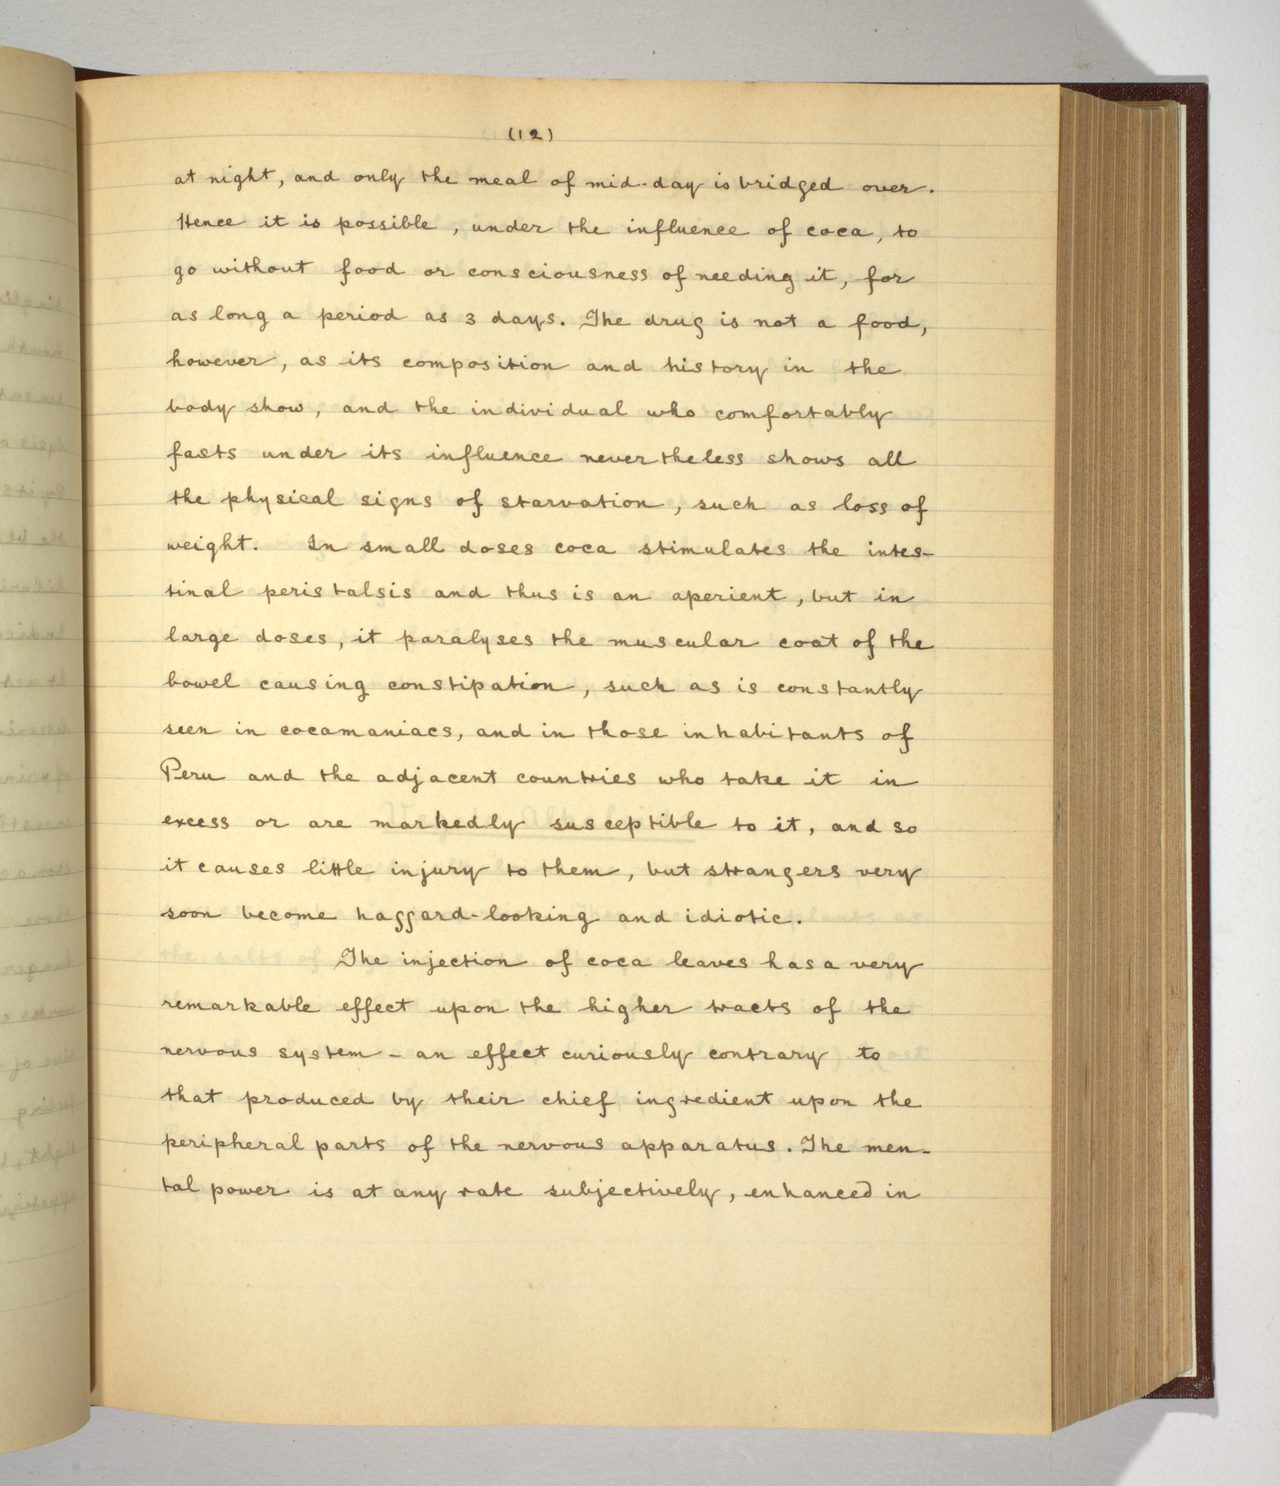 (12)
at night, and only the meal of mid-day is bridged over.
Hence it is possible, under the influence of coca, to
go without food or consciousness of needing it, for
as long a period as 3 days. The drug is not a food,
however, as its composition and history in the
body show, and the individual who comfortably
fasts under its influence nevertheless shows all
the physical signs of starvation, such as loss of
weight. In small doses coca stimulates the intes-
tinal peristalsis and thus is an aperient, but in
large doses, it paralyses the muscular coat of the
bowel causing constipation, such as is constantly
seen in cocamaniacs, and in those inhabitants of
Peru and the adjacent countries who take it in
excess or are markedly susceptible to it, and so
it causes little injury to them, but strangers very
soon become haggard-looking and idiotic.
The injection of coca leaves has a very
remarkable effect upon the higher tracts of the
nervous system - an effect curiously contrary to
that produced by their chief ingredient upon the
peripheral parts of the nervous apparatus. The men-
tal power is at any rate subjectively, enhanced in